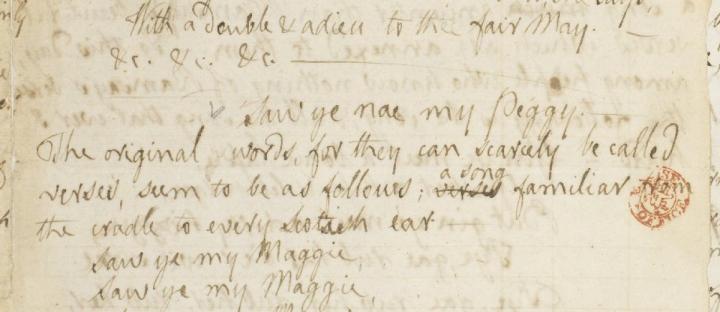 With a double & adieu to thee fair May.
&c. &c. &c.
Saw ye nae my Peggy.
The original words, for they can scarcely be called
verses, seem to be as follows; a song familiar from
the cradle to every Scotish ear
Saw ye my Maggie,
Saw ye my Maggie,